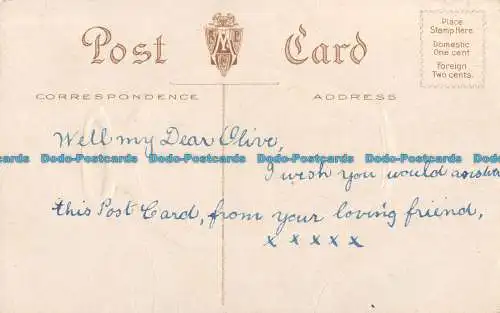 Post Card
Place
Stamp Here.
Domestic
One cent
Foreign
Two cents.
CORRESPONDENCE
ADDRESS
Well my Dear Olive,
Dodo-Postcards Dodo-Postcards Dodo-Postcards Dodo-Postcards Dodo-Postcards
I wish you would
this Post Card, from your loving friend,
x x x x x